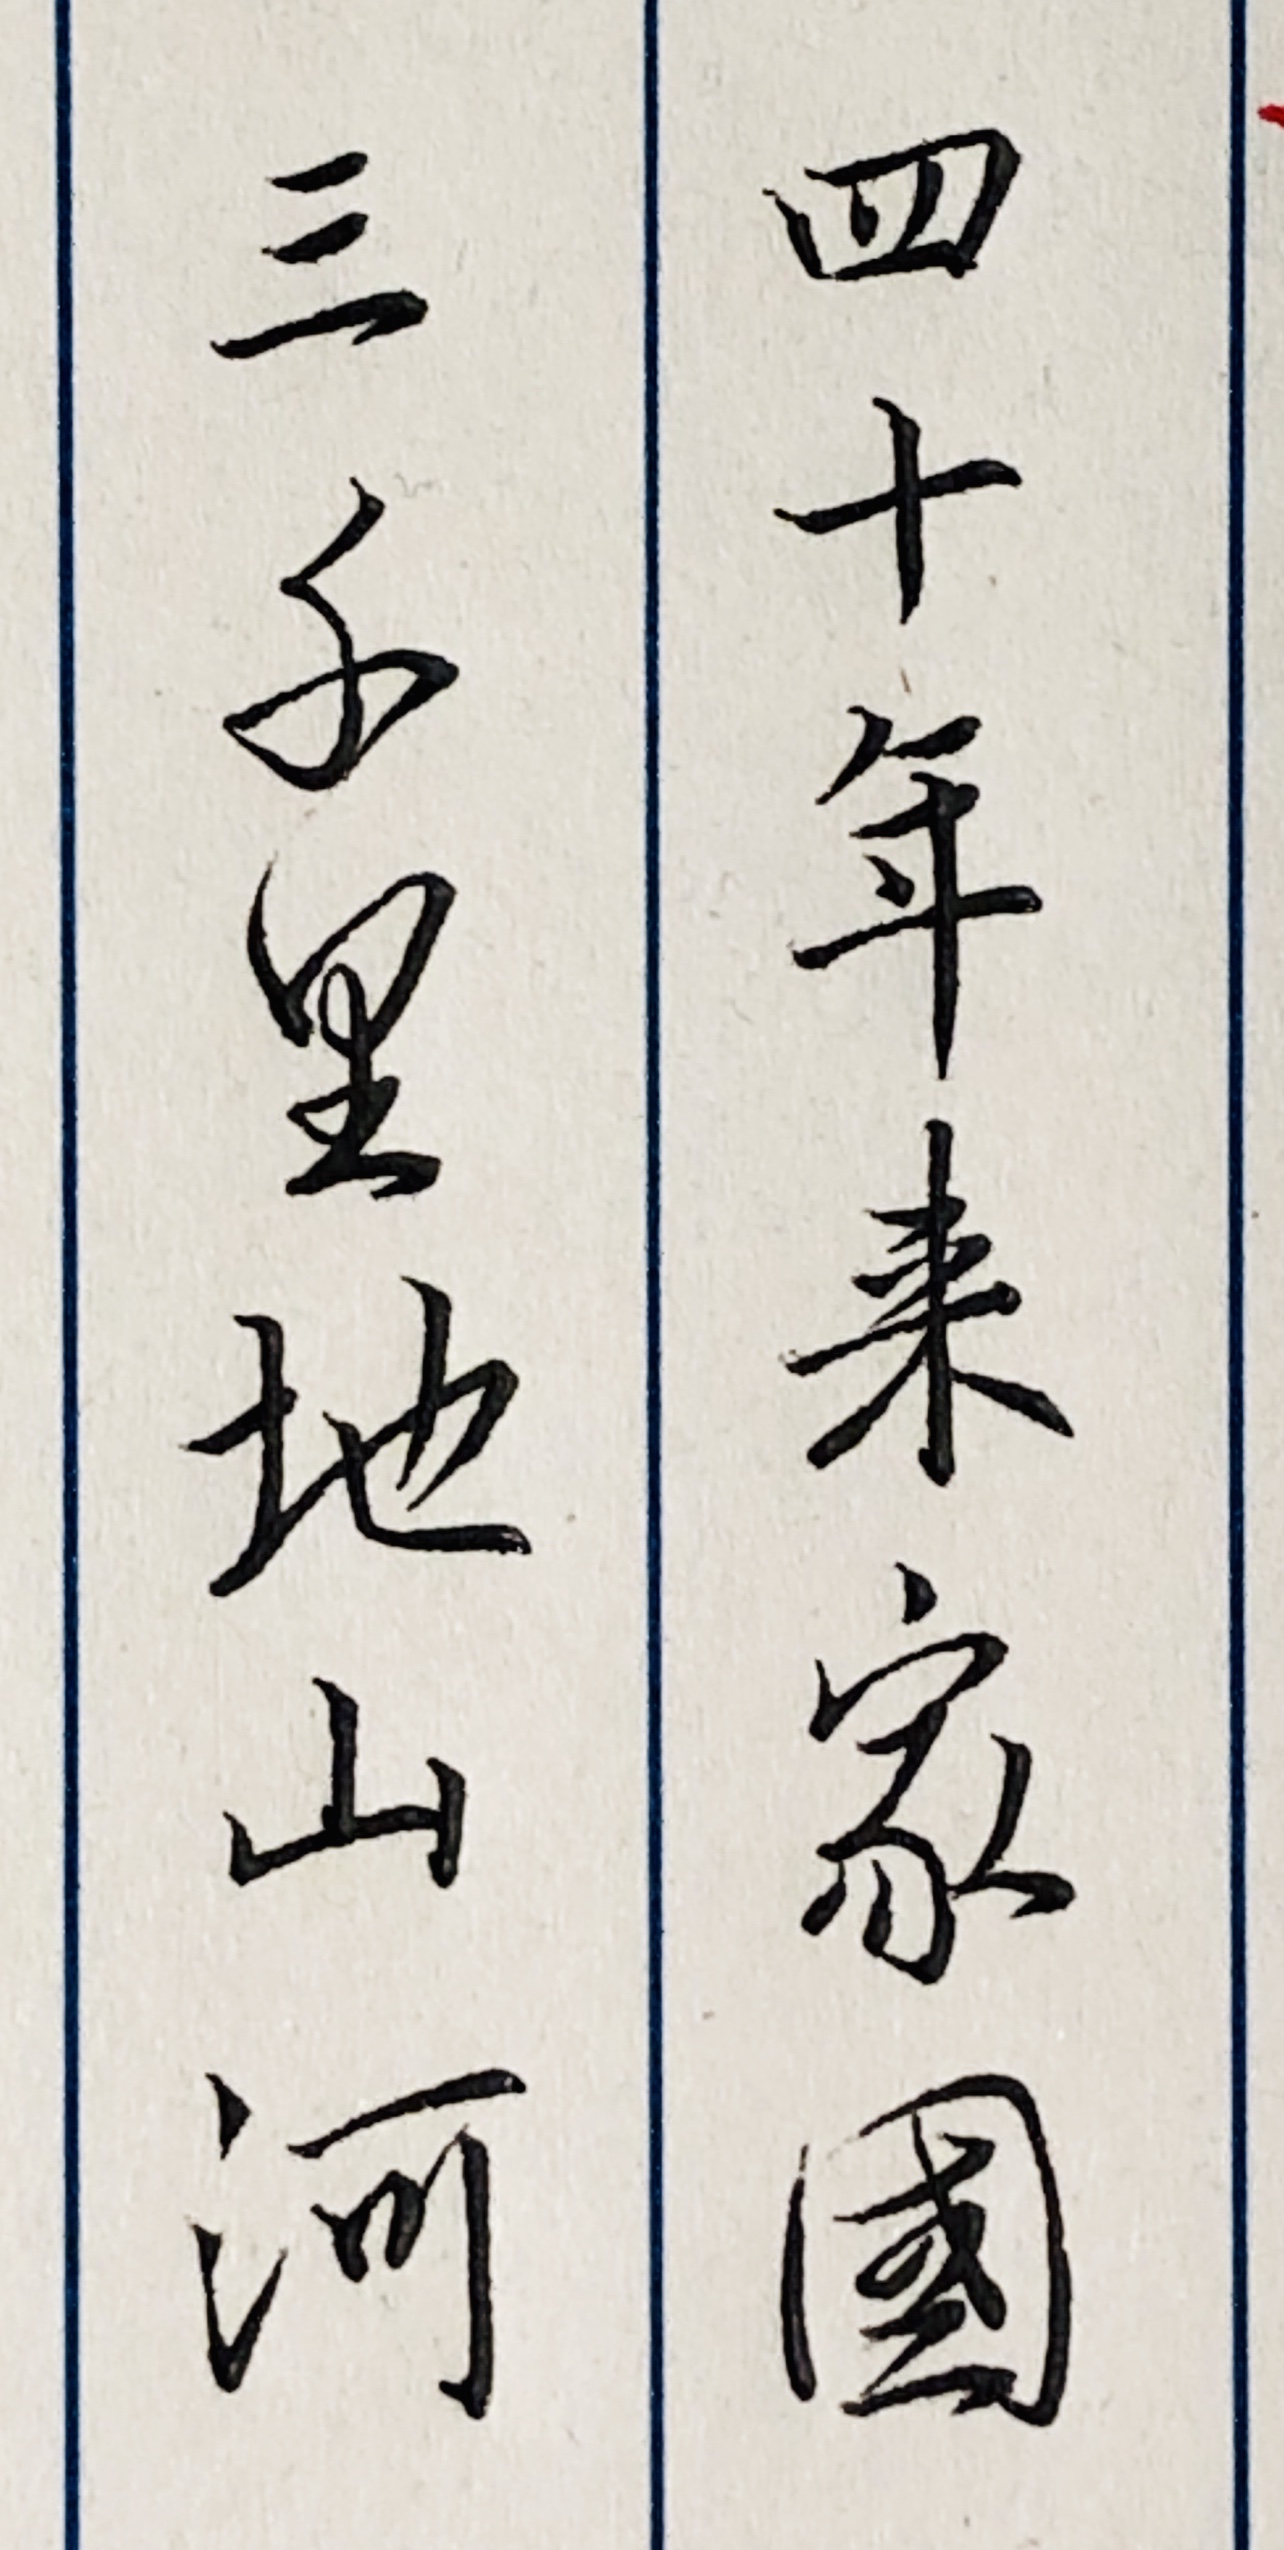 四十年来家國
三千里地山河